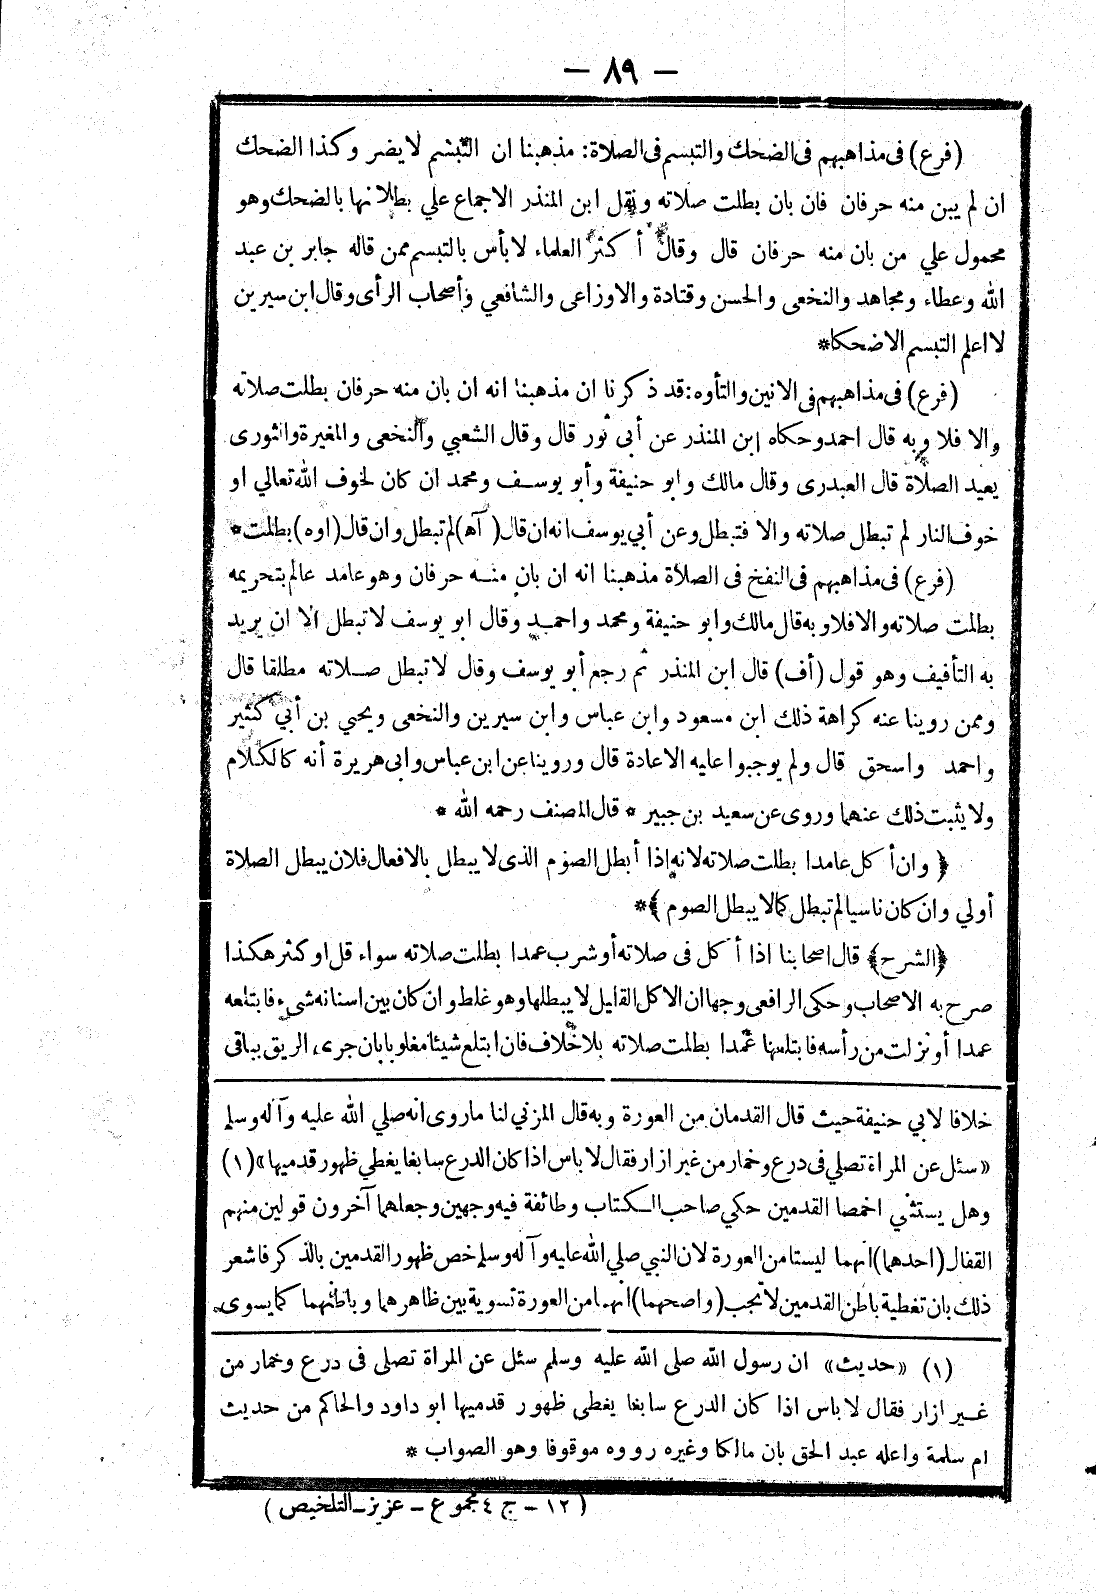 — ٨٩ —
(فرع) فى مذاهبهم فى الضحك والتبسم فى الصلاة: مذهبنا ان التبسم لا يضر وكذا الضحك
ان لم يبن منه حرفان فان بان بطلت صلاته ونقل ابن المنذر الاجماع علي بطلانها بالضحك وهو
محمول علي من بان منه حرفان قال وقال أكثر العلماء لا بأس بالتبسم ممن قاله جابر بن عبد
الله وعطاء ومجاهد والنخعى والحسن وقتادة والاوزاعى والشافعي وأصحاب الرأى وقال ابن سيرين
لا اعلم التبسم الا ضحكا*
(فرع) فى مذاهبهم فى الانين والتأوه: قد ذكرنا ان مذهبنا انه ان بان منه حرفان بطلت صلاته
والا فلا وبه قال احمد وحكاه ابن المنذر عن أبى ثور قال وقال الشعبي والنخعى والمغيرة والثورى
يعيد الصلاة قال العبدرى وقال مالك وابو حنيفة وأبو يوسف ومحمد ان كان لخوف الله تعالي او
خوف النار لم تبطل صلاته والا فتبطل وعن أبي يوسف انه ان قال (آه) لم تبطل وان قال (اوه) بطلت*
(فرع) فى مذاهبهم فى النفخ فى الصلاة مذهبنا انه ان بان منه حرفان وهو عامد عالم بتحريمه
بطلت صلاته والا فلا وبه قال مالك وابو حنيفة ومحمد واحمد وقال ابو يوسف لا تبطل الا ان يريد
به التأفيف وهو قول (أف) قال ابن المنذر ثم رجع أبو يوسف وقال لا تبطل صلاته مطلقا قال
وممن روينا عنه كراهة ذلك ابن مسعود وابن عباس وابن سيرين والنخعى ويحيي بن أبي كثير
واحمد واسحق قال ولم يوجبوا عليه الاعادة قال وروينا عن ابن عباس وابى هريرة أنه كالكلام
ولا يثبت ذلك عنهما وروى عن سعيد بن جبير * قال المصنف رحمه الله *
﴿وان أكل عامدا بطلت صلاته لانه إذا أبطل الصوم الذى لا يبطل بالافعال فلان يبطل الصلاة
أولي وان كان ناسيا لم تبطل كما لا يبطل الصوم﴾*
﴿الشرح﴾ قال اصحابنا اذا أكل فى صلاته أو شرب عمدا بطلت صلاته سواء قل او كثر هكذا
صرح به الاصحاب وحكى الرافعى وجها ان الاكل القليل لا يبطلها وهو غلط وان كان بين اسنانه شىء فابتلعه
عمدا أو نزلت من رأسه فابتلعها عمدا بطلت صلاته بلا خلاف فان ابتلع شيئا مغلوبا بان جرى الريق بباقى
خلافا لابي حنيفة حيث قال القدمان من العورة وبه قال المزني لنا ما روى انه صلي الله عليه وآله وسلم
«سئل عن المراة تصلي فى درع وخمار من غير ازار فقال لا باس اذا كان الدرع سابغا يغطي ظهور قدميها» (١)
وهل يستثني اخمصا القدمين حكي صاحب الكتاب وطائفة فيه وجهين وجعلهما آخرون قولين منهم
القفال (احدهما) انهما ليستا من العورة لان النبي صلي الله عليه وآله وسلم خص ظهور القدمين بالذكر فاشعر
ذلك بان تغطية باطن القدمين لا تجب (واصحهما) انهما من العورة تسوية بين ظاهرهما وباطنهما كما يسوى
(١) «حديث» ان رسول الله صلى الله عليه وسلم سئل عن المراة تصلى فى درع وخمار من
غير ازار فقال لا باس اذا كان الدرع سابغا يغطى ظهور قدميها ابو داود والحاكم من حديث
ام سلمة واعله عبد الحق بان مالكا وغيره رووه موقوفا وهو الصواب *
(١٢ – ج ٤ مجموع – عزيز – التلخيص)